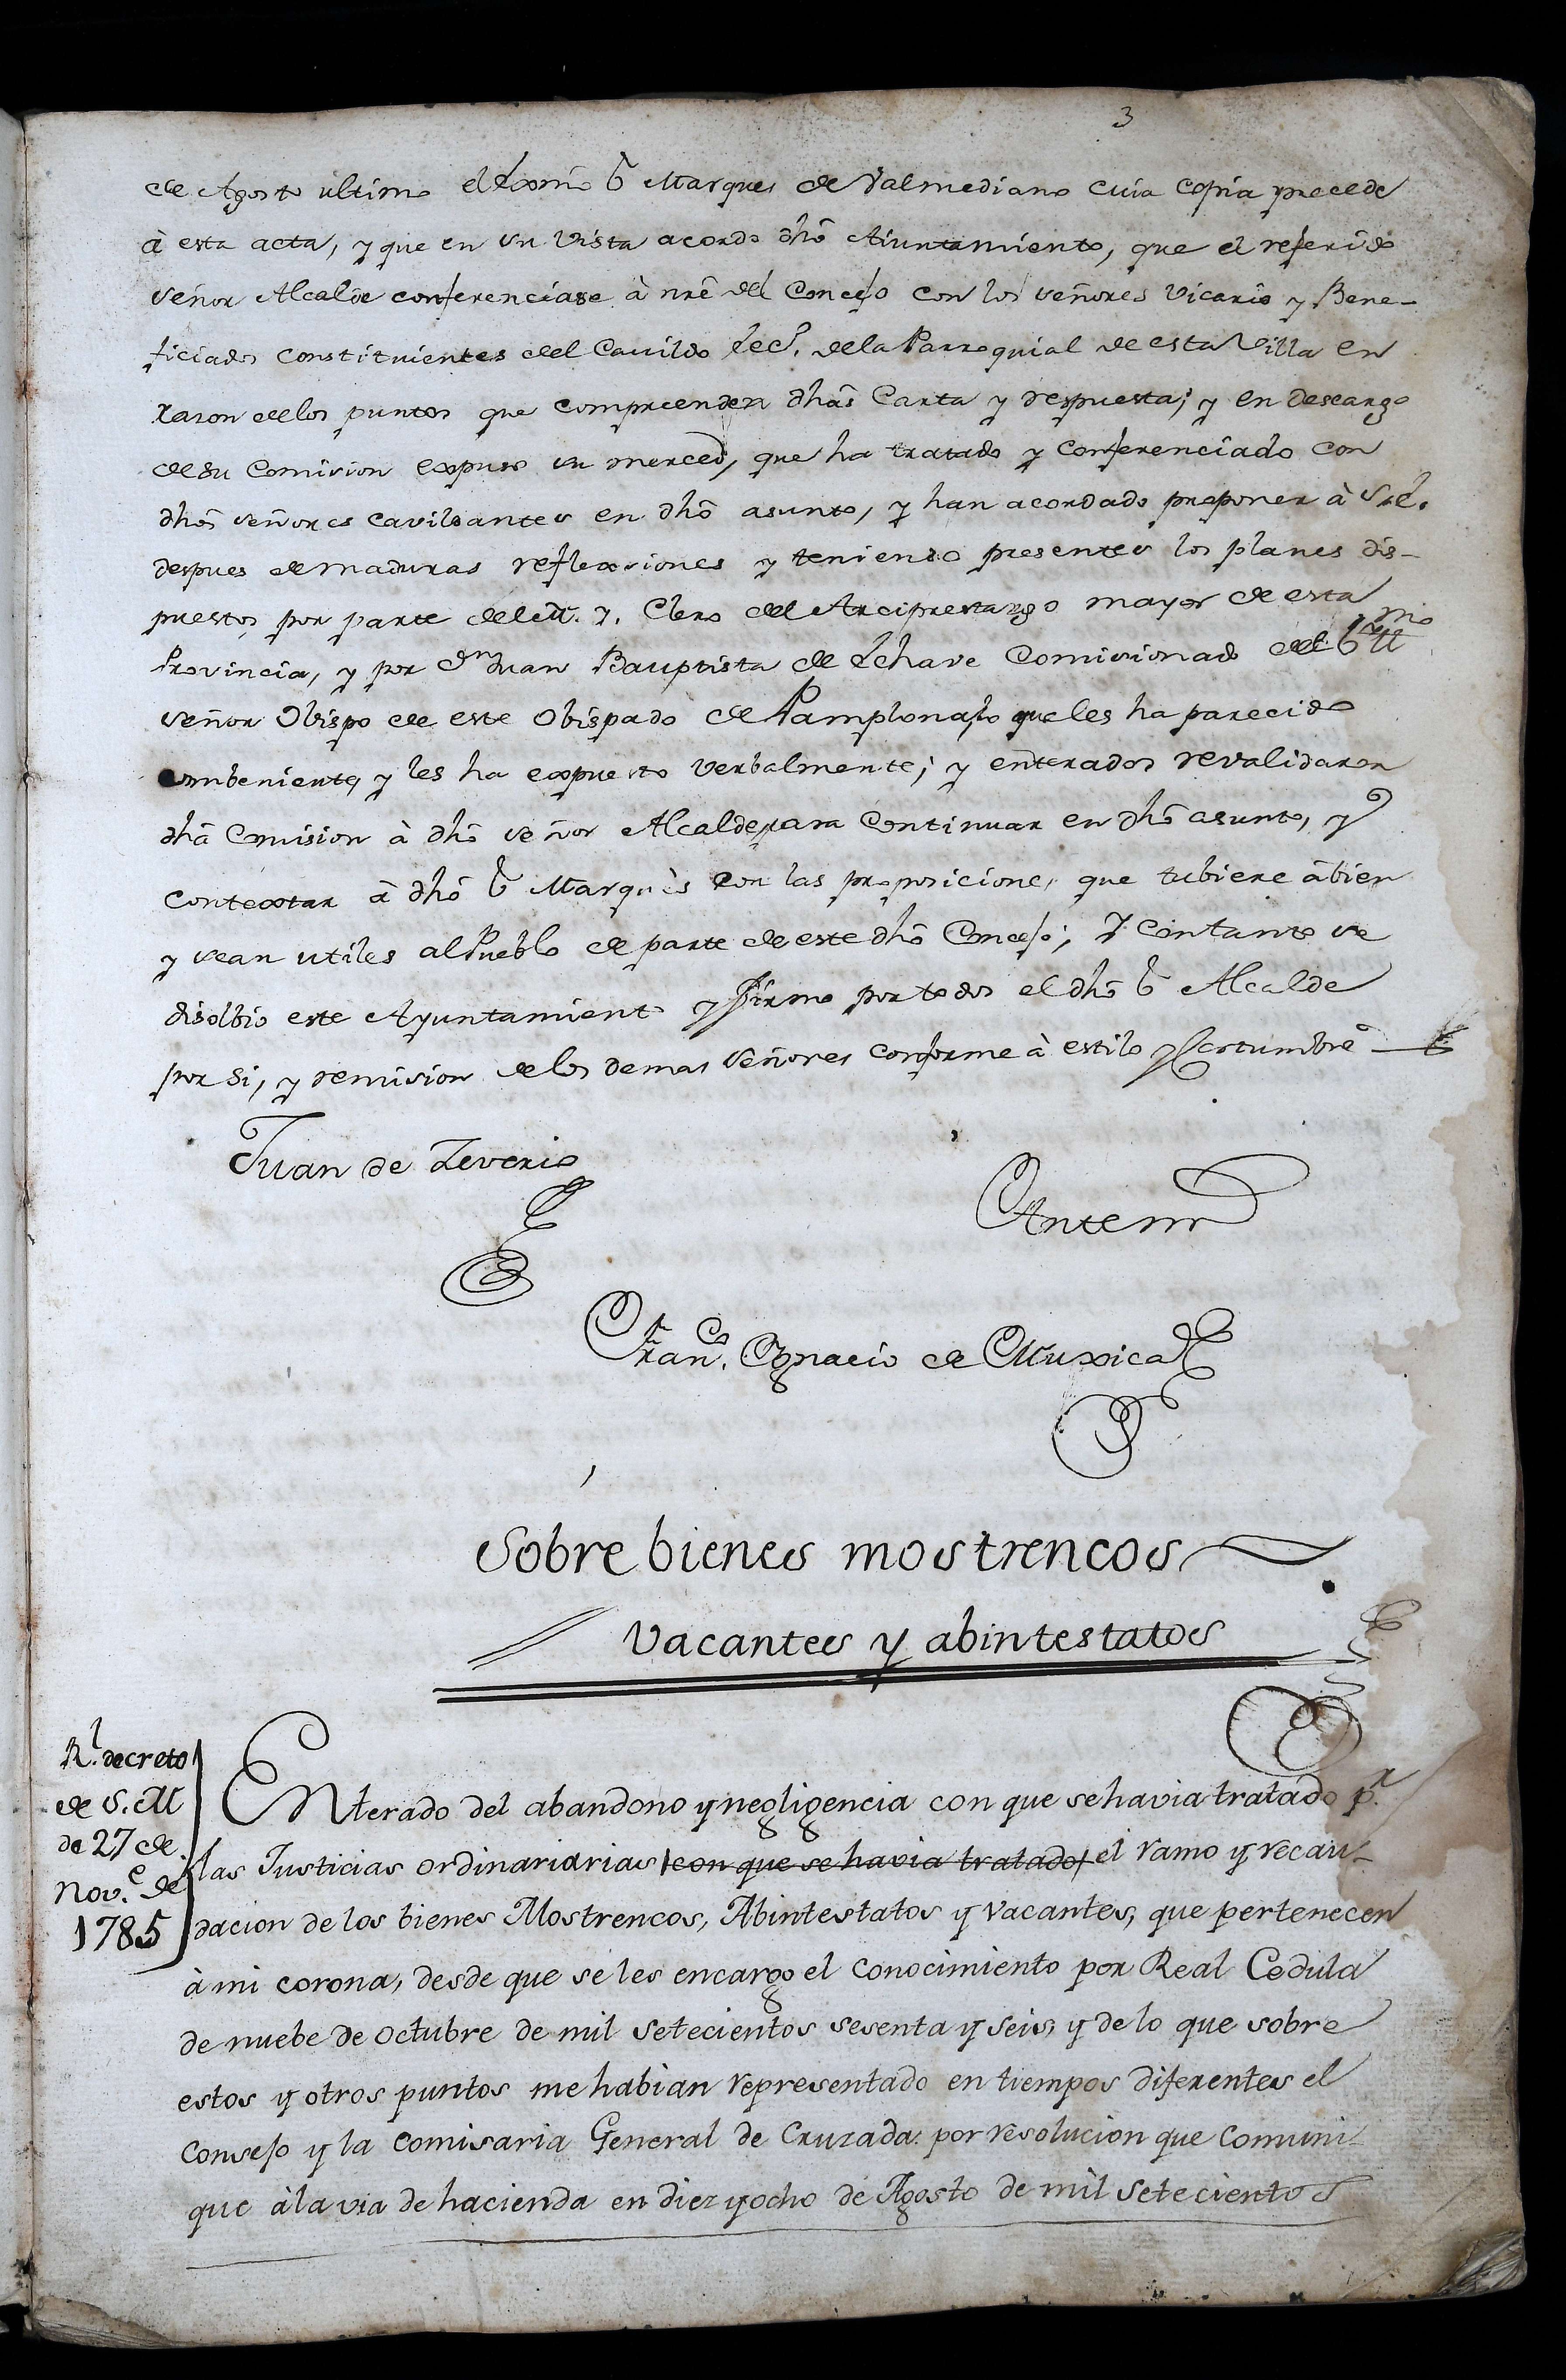 3
de Agosto ultimo el Exmô Sr Marques de Valmediano cuia copia precede
à esta acta, y que en su vista acordo dhô Aiuntamiento, que el referido
señor Alcalde conferenciase à nrê del Concejo con los señores Vicario y Bene-
ficiados constituientes del Cavildo Ecco. dela Parroquial de esta Villa en
razon delos puntos que comprenden dhâs Carta y respuesta; y en descargo
de su Comision expuso su merced, que ha tratado y conferenciado con
dhôs señores cavildantes en dhô asunto, y han acordado proponer à
despues de maduras reflexsiones y teniendo presentes los planes dis-
puestos por parte del M. Y. Clero del Arciprestazgo mayor de esta
Provincia, y por Dn Juan Bauptista de Echave Comisionado del Yllmo
señor Obispo de este Obispado de Pamplona, lo que les ha parecido
combeniente, y les ha expuesto verbalmente; y enterados revalidaron
dhâ Comision à dhô señor Alcalde, para continuar en dhô asunto, y
contextar à dhô Sr Marquès con las proposiciones que tubiere âbien
y sean utiles al Pueblo de parte de este dhô Concejo; Y con tanto se
disolbio este Ayuntamiento y firmo por todos el dhô Sr Alcalde
por si, y remision delos demas señores conforme à estilo y costumbre
Juan de Zeverio
Antemi
Franco. Ygnacio de Muxica
Sobre bienes mostrencos
vacantes y abintestatos
Rl. decreto
de S. M
de 27 de
Nove. de
1785
Enterado del abandono y negligencia con que sehavia tratado pr.
las Justicias ordinariarias con que se havia tratado el ramo y recau-
dacion de los bienes Mostrencos, Abintestatos y vacantes, que pertenecen
à mi corona, desde que se les encargo el conocimiento por Real Cedula
de nuebe de octubre de mil setecientos sesenta y seis, y de lo que sobre
estos y otros puntos me habian representado en tiempos diferentes el
consejo y la comisaria General de Cruzada: por resolucion que comuni-
que àla via de hacienda en diez yocho de Agosto de mil setecientos